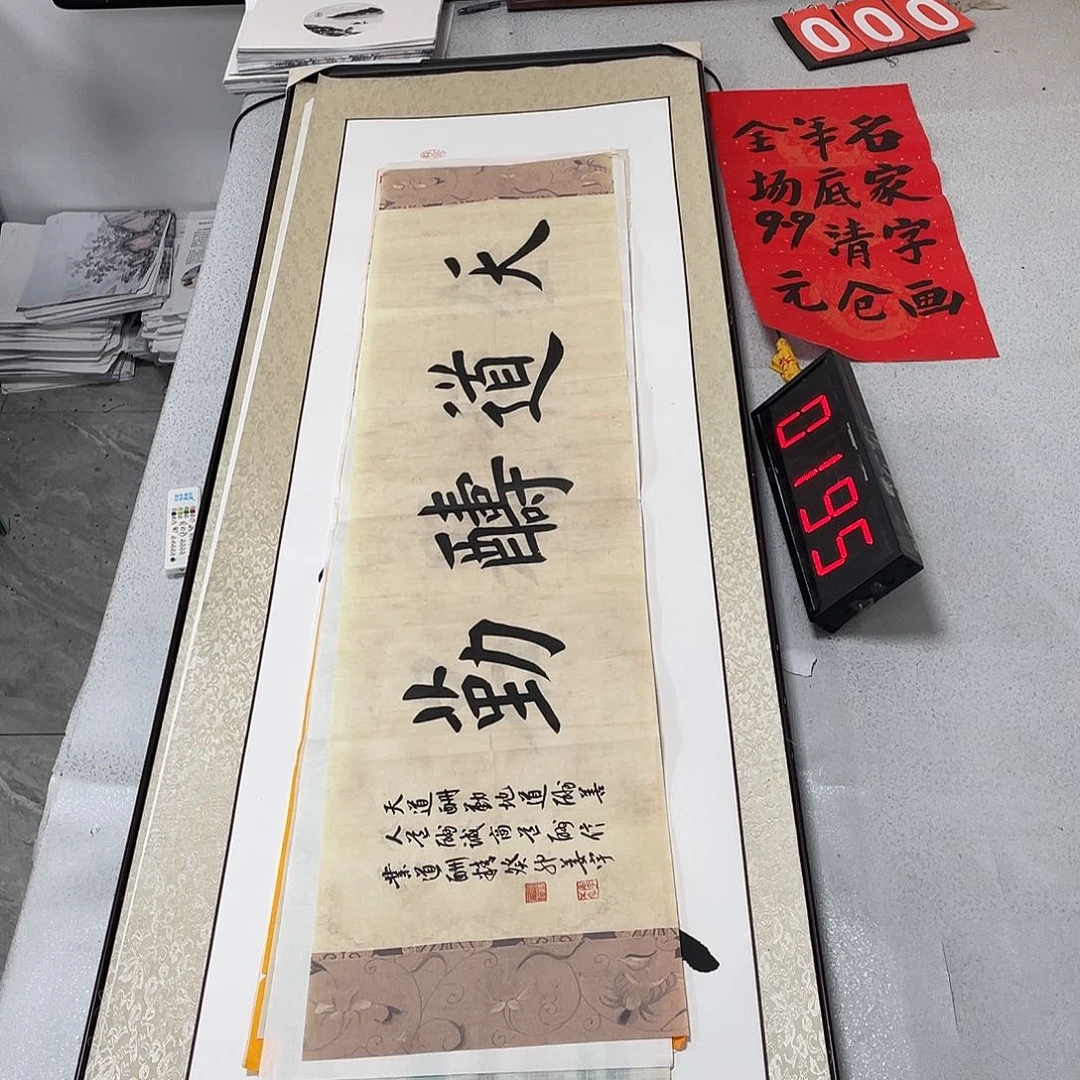 000
名家字画
年底清仓
全场9.9元
0195
天道醻勤
天道酬勤地道酬善
人道酬诚商道酬信
業道酬精癸卯